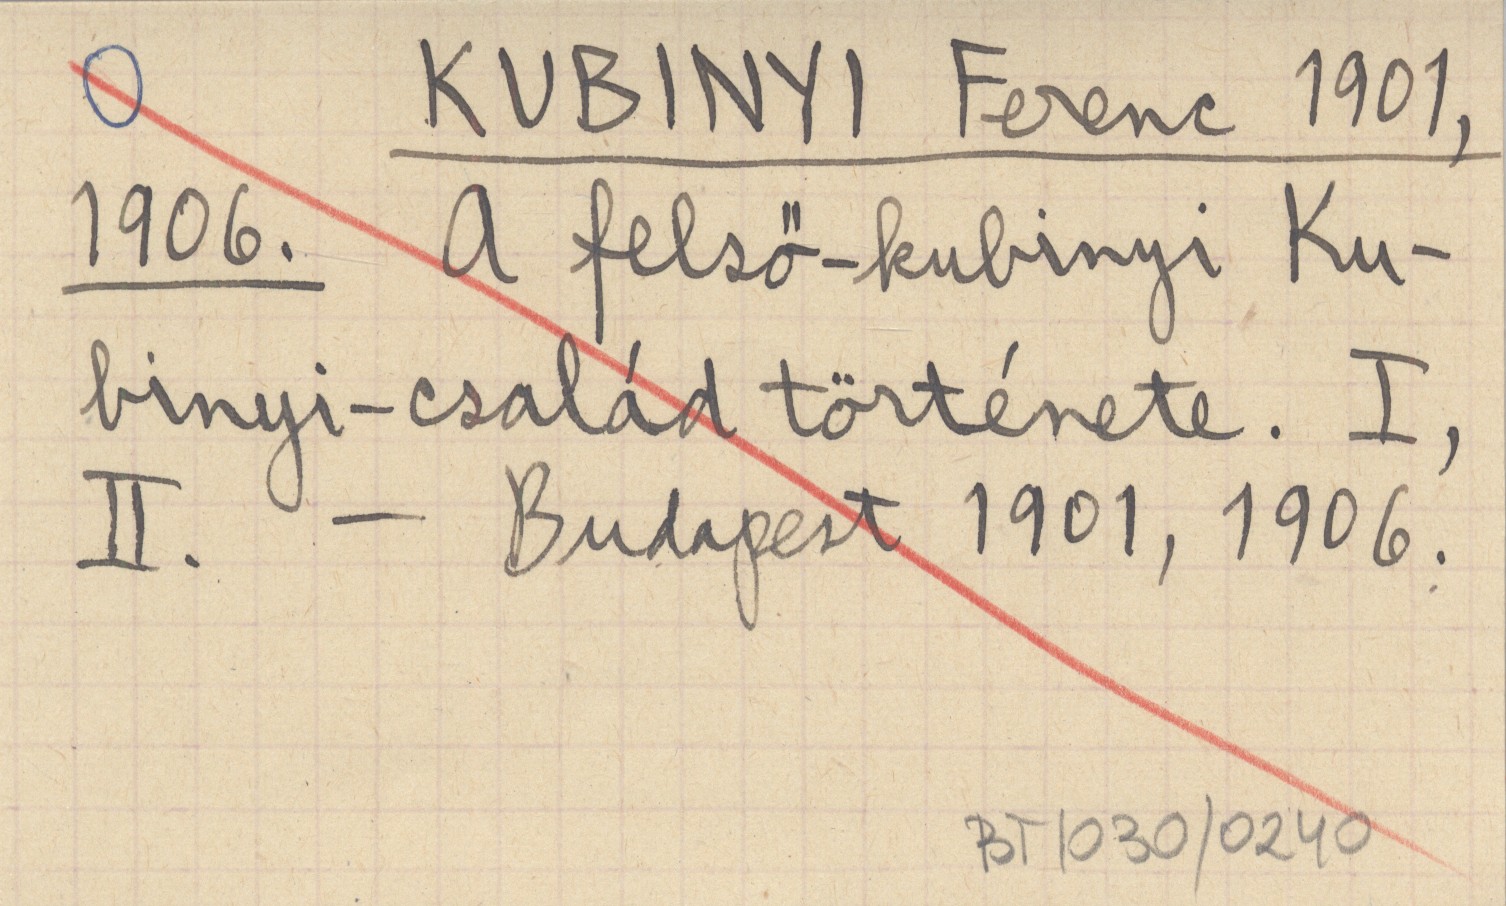 O KUBINYI Ferenc 1901,
1906. A felső-kubinyi Ku-
binyi-család története. I,
II. — Budapest 1901, 1906.
BT/030/0240